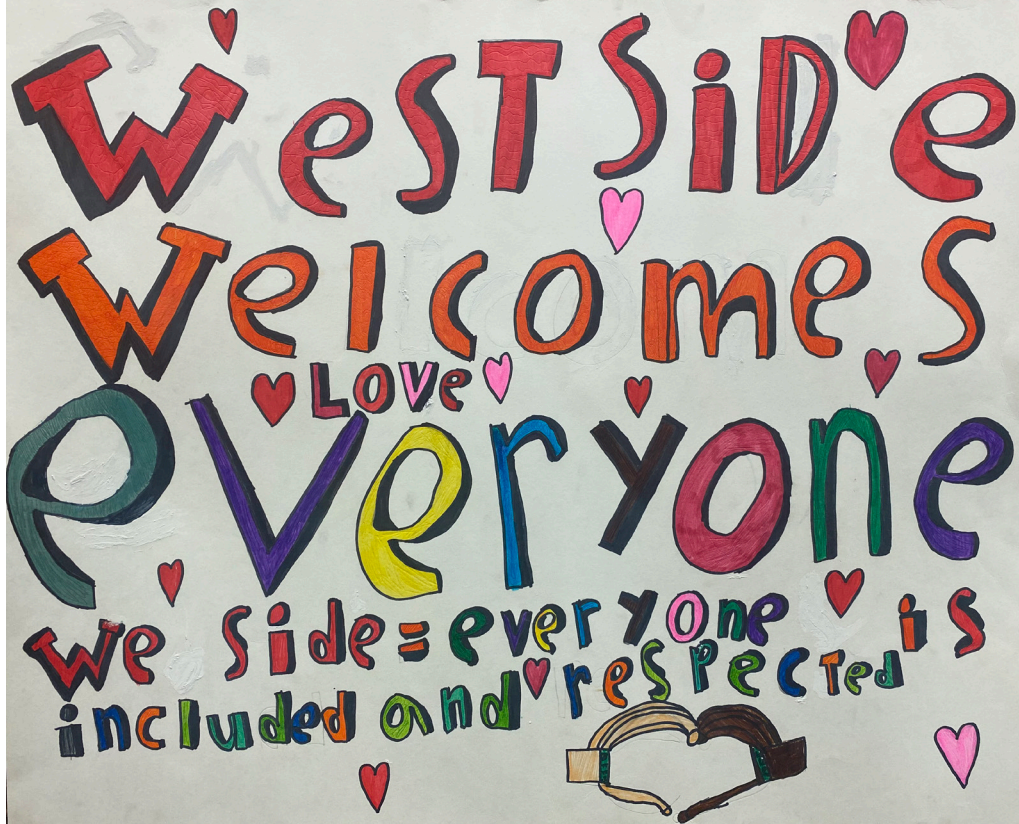 WeST SiDe
WelcomeS
LOVe
everyone
We Side = everyone is
included and respected